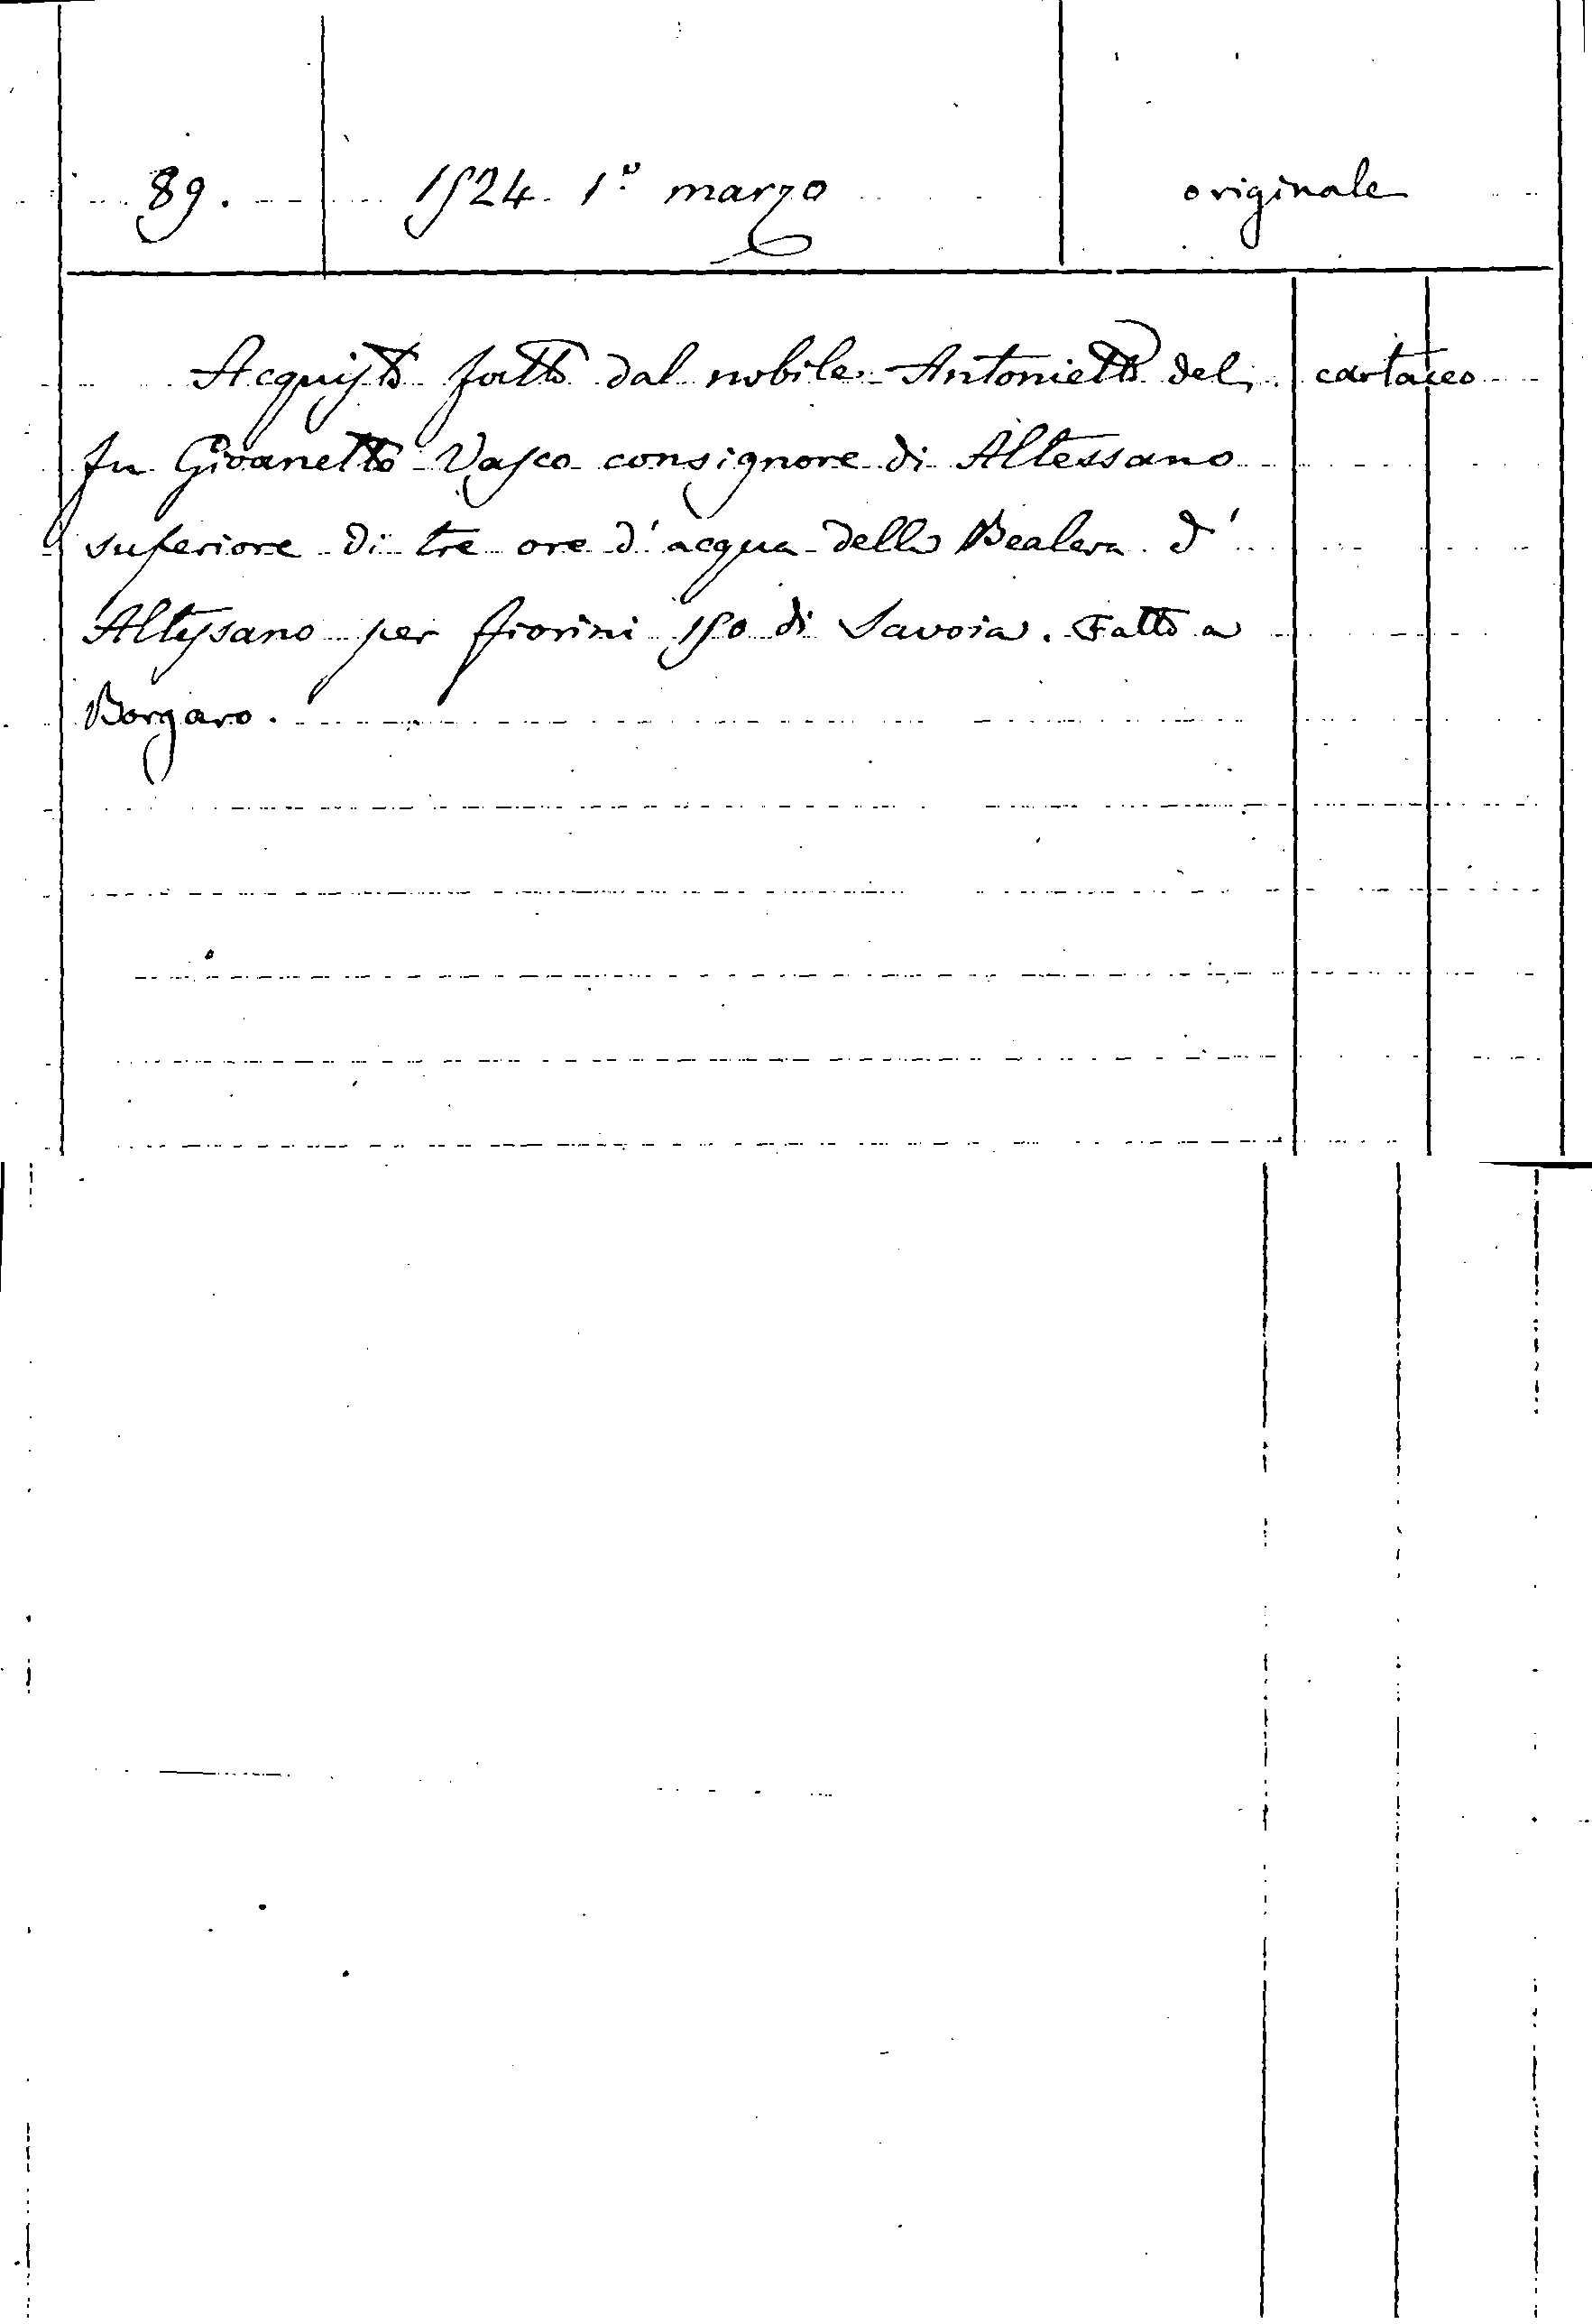 89. 1524. 1º marzo originale
Acquisto fatto dal nobile Antonietto del cartaceo
fu Gioanetto Vasco consignore di Altessano
superiore di tre ore d'acqua della Bealera d'
Altessano per fiorini 150 di Savoia. Fatto a
Borgaro.